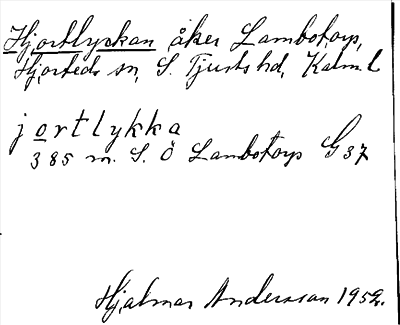 Hjortlyckan åker Lambotorp,
Hjorteds sn, S. Tjusts hd, Kalm. l
jortlykka
385 m. S. Ö Lambotorp G37
Hjalmar Andersson 1952.